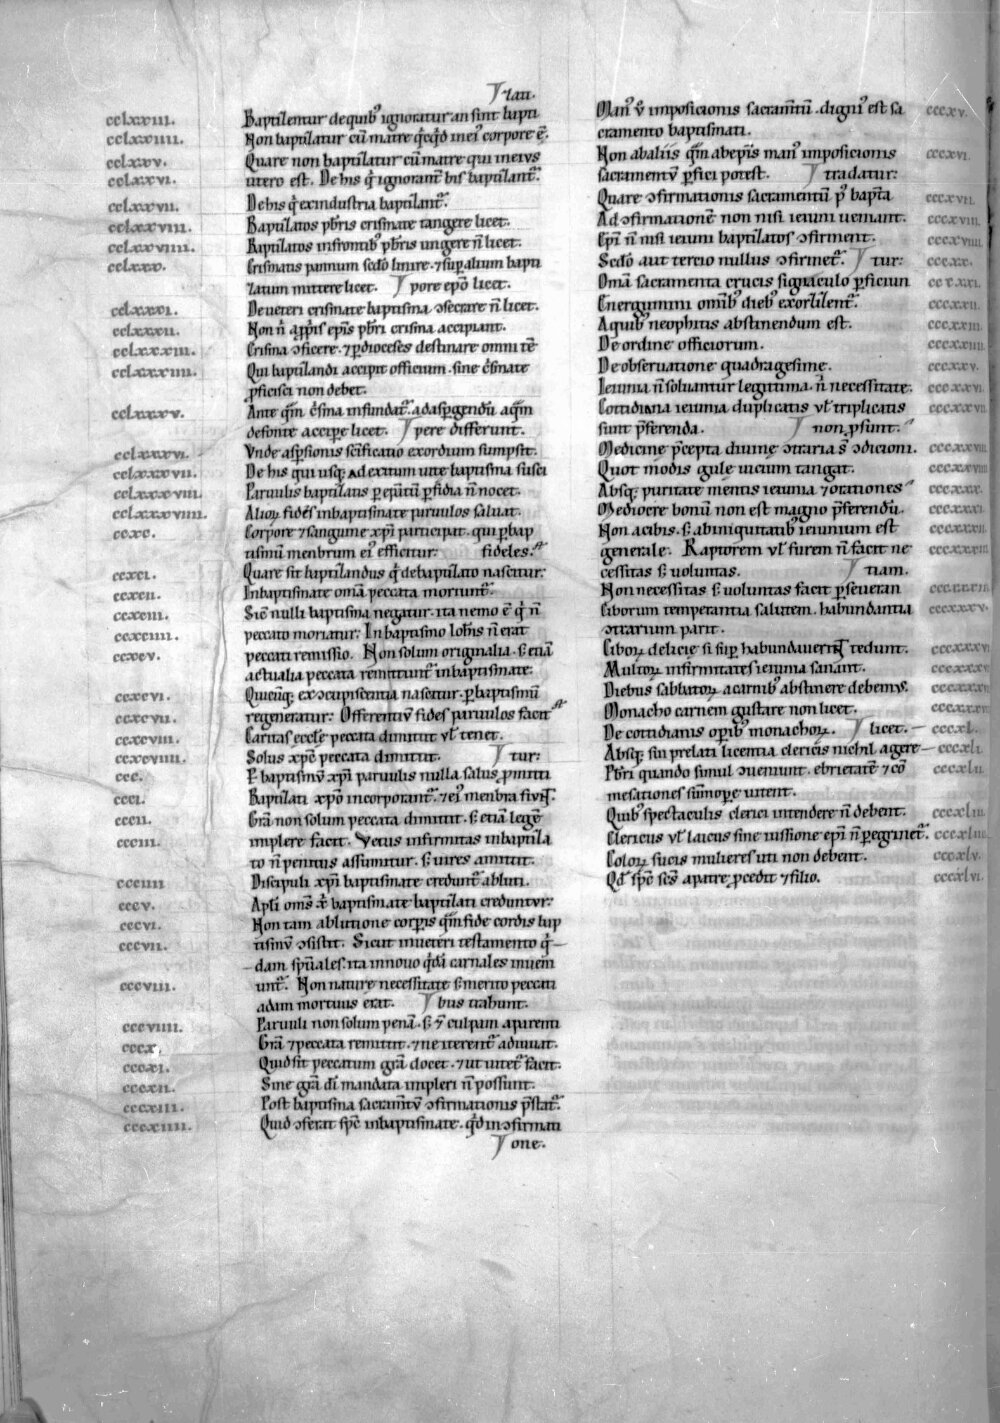 zati.
cclxxiii. Baptizentur de quibꝰ ignoratur an sint bapti
cclxxiiii. Non baptizatur cū matre q̇cq̇d in eiꝰ corpore ē.
cclxxv. Quare non baptizatur cū matre qui in eius
cclxxvi. utero est. De his q̇ ignorant̄ bis baptizant̄.
cclxxvii. De his q̇ ex industria baptizant̄.
cclxxviii. Baptizatos pb̄ris crismate tangere licet.
cclxxviiii. Baptizatos in frontibꝰ pb̄ris ungere n̄ licet.
cclxxx. Crismatis pannum scd̄o linire. ⁊ suꝑ alium bapti
zatum mittere licet. pore ep̄o licet.
cclxxxi. De ueteri crismate baptisma ↄsecrare n̄ licet.
cclxxxii. Non n̄ a ꝓpriis ep̄is pb̄ri crisma accipiant.
cclxxxiii. Crisma ↄficere. ⁊ ꝑ dioceses destinare omni tē
cclxxxiiii. Qui baptizandi accipit officium. sine c̄smate
ꝓficisci non debet.
cclxxxv. Ante qm̄ c̄sma infundat̄. ad aspḡendū aqm̄
de fonte accipe licet. pere differunt.
cclxxxvi. Vnde asp̄sionis sc̄ificatio exordium sumpsit.
cclxxxvii. De his qui usq; ad exitum uite baptisma susci
cclxxxviii. Paruulis baptizatis ꝑentū ꝑfidia n̄ nocet.
cclxxxviiii. Alioꝝ fides in baptismate paruulos saluat.
ccxc. Corpore ⁊ sanguine xp̄i participat. qui ꝑ bap
tismū menbrum eiꝰ efficitur. fideles.
ccxci. Quare sit baptizandus q̇ de baptizato nascitur.
ccxcii. In baptismate om̄a peccata moriunt̄.
ccxciii. Sic̄ nulli baptisma negatur. ita nemo ē q̇ n̄
ccxciiii. peccato moriatur. In baptismo Ioh̄is n̄ erat
ccxcv. peccati remissio. Non solum originalia. s; etiā
actualia peccata remittunt̄ in baptismate.
ccxcvi. Quicūq; ex ↄcupiscentia nascitur. ꝑ baptismū
ccxcvii. regeneratur. Offerentiū fides paruulos facit
ccxcviii. Caritas eccl̄e peccata dimittit ul̄ tenet.
ccxcviiii. Solus xp̄c peccata dimittit. tur.
ccc. P̄ baptismū xp̄i paruulis nulla salus ꝓmitti
ccci. Baptizati xp̄o incorporant̄. ⁊ eiꝰ menbra fiunt.
cccii. Gr̄a non solum peccata dimittit. s; etiā legē
ccciii. implere facit. Vetus infirmitas in baptiza
to n̄ penitus assumitur. s; uires amittit.
ccciiii Discipuli xp̄i baptismate credunt̄ abluti.
cccv. Apl̄i oms̄ xp̄i baptismate baptizati creduntur.
cccvi. Non tam ablutione corꝑis qm̄ fide cordis bap
cccvii. tismū ↄsistit. Sicut in ueteri testamento q̇
dam sp̄uales. ita in nouo q̇dā carnales inueni
cccviii. unt̄. Non nature necessitate s; merito peccati
adam mortuus erat. bus trahunt.
cccviiii. Paruuli non solum penā. s; ⁊ culpam a parenti
cccx. Gr̄a ⁊ peccata remittit. ⁊ ne iterent̄ adiuuat.
cccxi. Quid sit peccatum gr̄a docet. ⁊ ut uitet̄ facit.
cccxii. Sine gr̄a dī mandata impleri n̄ possunt.
cccxiii. Post baptisma sacram̄tū ↄfirmationis p̄stat̄.
cccxiiii. Quid ↄferat sp̄c in baptismate. q̇d in ↄfirmati
one.
Manꝰ ū impositionis sacram̄tū. digniꝰ est sa cccxv.
cramento baptismati.
Non ab aliis qm̄ ab ep̄is manꝰ impositionis cccxvi.
sacramentū ꝑfici potest. tradatur.
Quare ↄfirmationis sacramentū pꝰ bapt̄a cccxvii.
Ad ↄfirmationē non nisi ieiuni ueniant. cccxviii.
Ep̄i n̄ nisi ieiuni baptizatos ↄfirment. cccxviiii.
Scd̄o aut tercio nullus ↄfirmet̄. tur. cccxx.
Om̄a sacramenta crucis signaculo ꝑficiun cccxxi.
Energumini omībꝰ diebꝰ exorzizent̄. cccxxii.
A quibꝰ neophitis abstinendum est. cccxxiii.
De ordine officiorum. cccxxiiii.
De obseruatione quadragesime. cccxxv.
Ieiunia n̄ soluantur legitima. n̄ necessitate. cccxxvi.
Cottidiana ieiunia duplicatis ul̄ triplicatis cccxxvii.
sunt p̄ferenda. non ꝓsunt.
Medicine p̄cepta diuinę ↄtraria s̄ ↄdicioni. cccxxviii.
Quot modis gule uicium tangat. cccxxviiii.
Absq; puritate mentis ieiunia ⁊ orationes cccxxx.
Mediocre bonū non est magno p̄ferendū. cccxxxi.
Non a cibis. s; ab iniquitatibꝰ ieiunium est cccxxxii.
generale. Raptorem ul̄ furem n̄ facit ne cccxxxiii.
cessitas s; uoluntas. tiam.
Non necessitas s; uoluntas facit ꝑseueran cccxxxiiii.
Ciborum temperantia salutem. habundantia cccxxxv.
ↄtrarium parit.
Ciboꝝ delicie si suꝑ habundauerint tedunt. cccxxxvi.
Multoꝝ infirmitates ieiunia sanant.
Diebus sabbatoꝝ a carnibꝰ abstinere debemꝰ.
Monacho carnem gustare non licet.
De cottidianis oꝑibꝰ monachoꝝ. licet. cccxl.
Absq; sui prelati licentia clericus nichil agere cccxli.
Pb̄ri quando simul ↄueniunt. ebrietatē ⁊ cō cccxlii.
mesationes sūmoꝑe uitent.
Quibꝰ spectaculis clerici intendere n̄ debent. cccxliii.
Clericus ul̄ laicus sine iussione ep̄i n̄ ꝑegrinet̄. cccxliiii.
Coloꝝ sucis mulieres uti non debent. cccxlv.
Qd̄ sp̄c sc̄s a patre ꝓcedit ⁊ filio. cccxlvi.